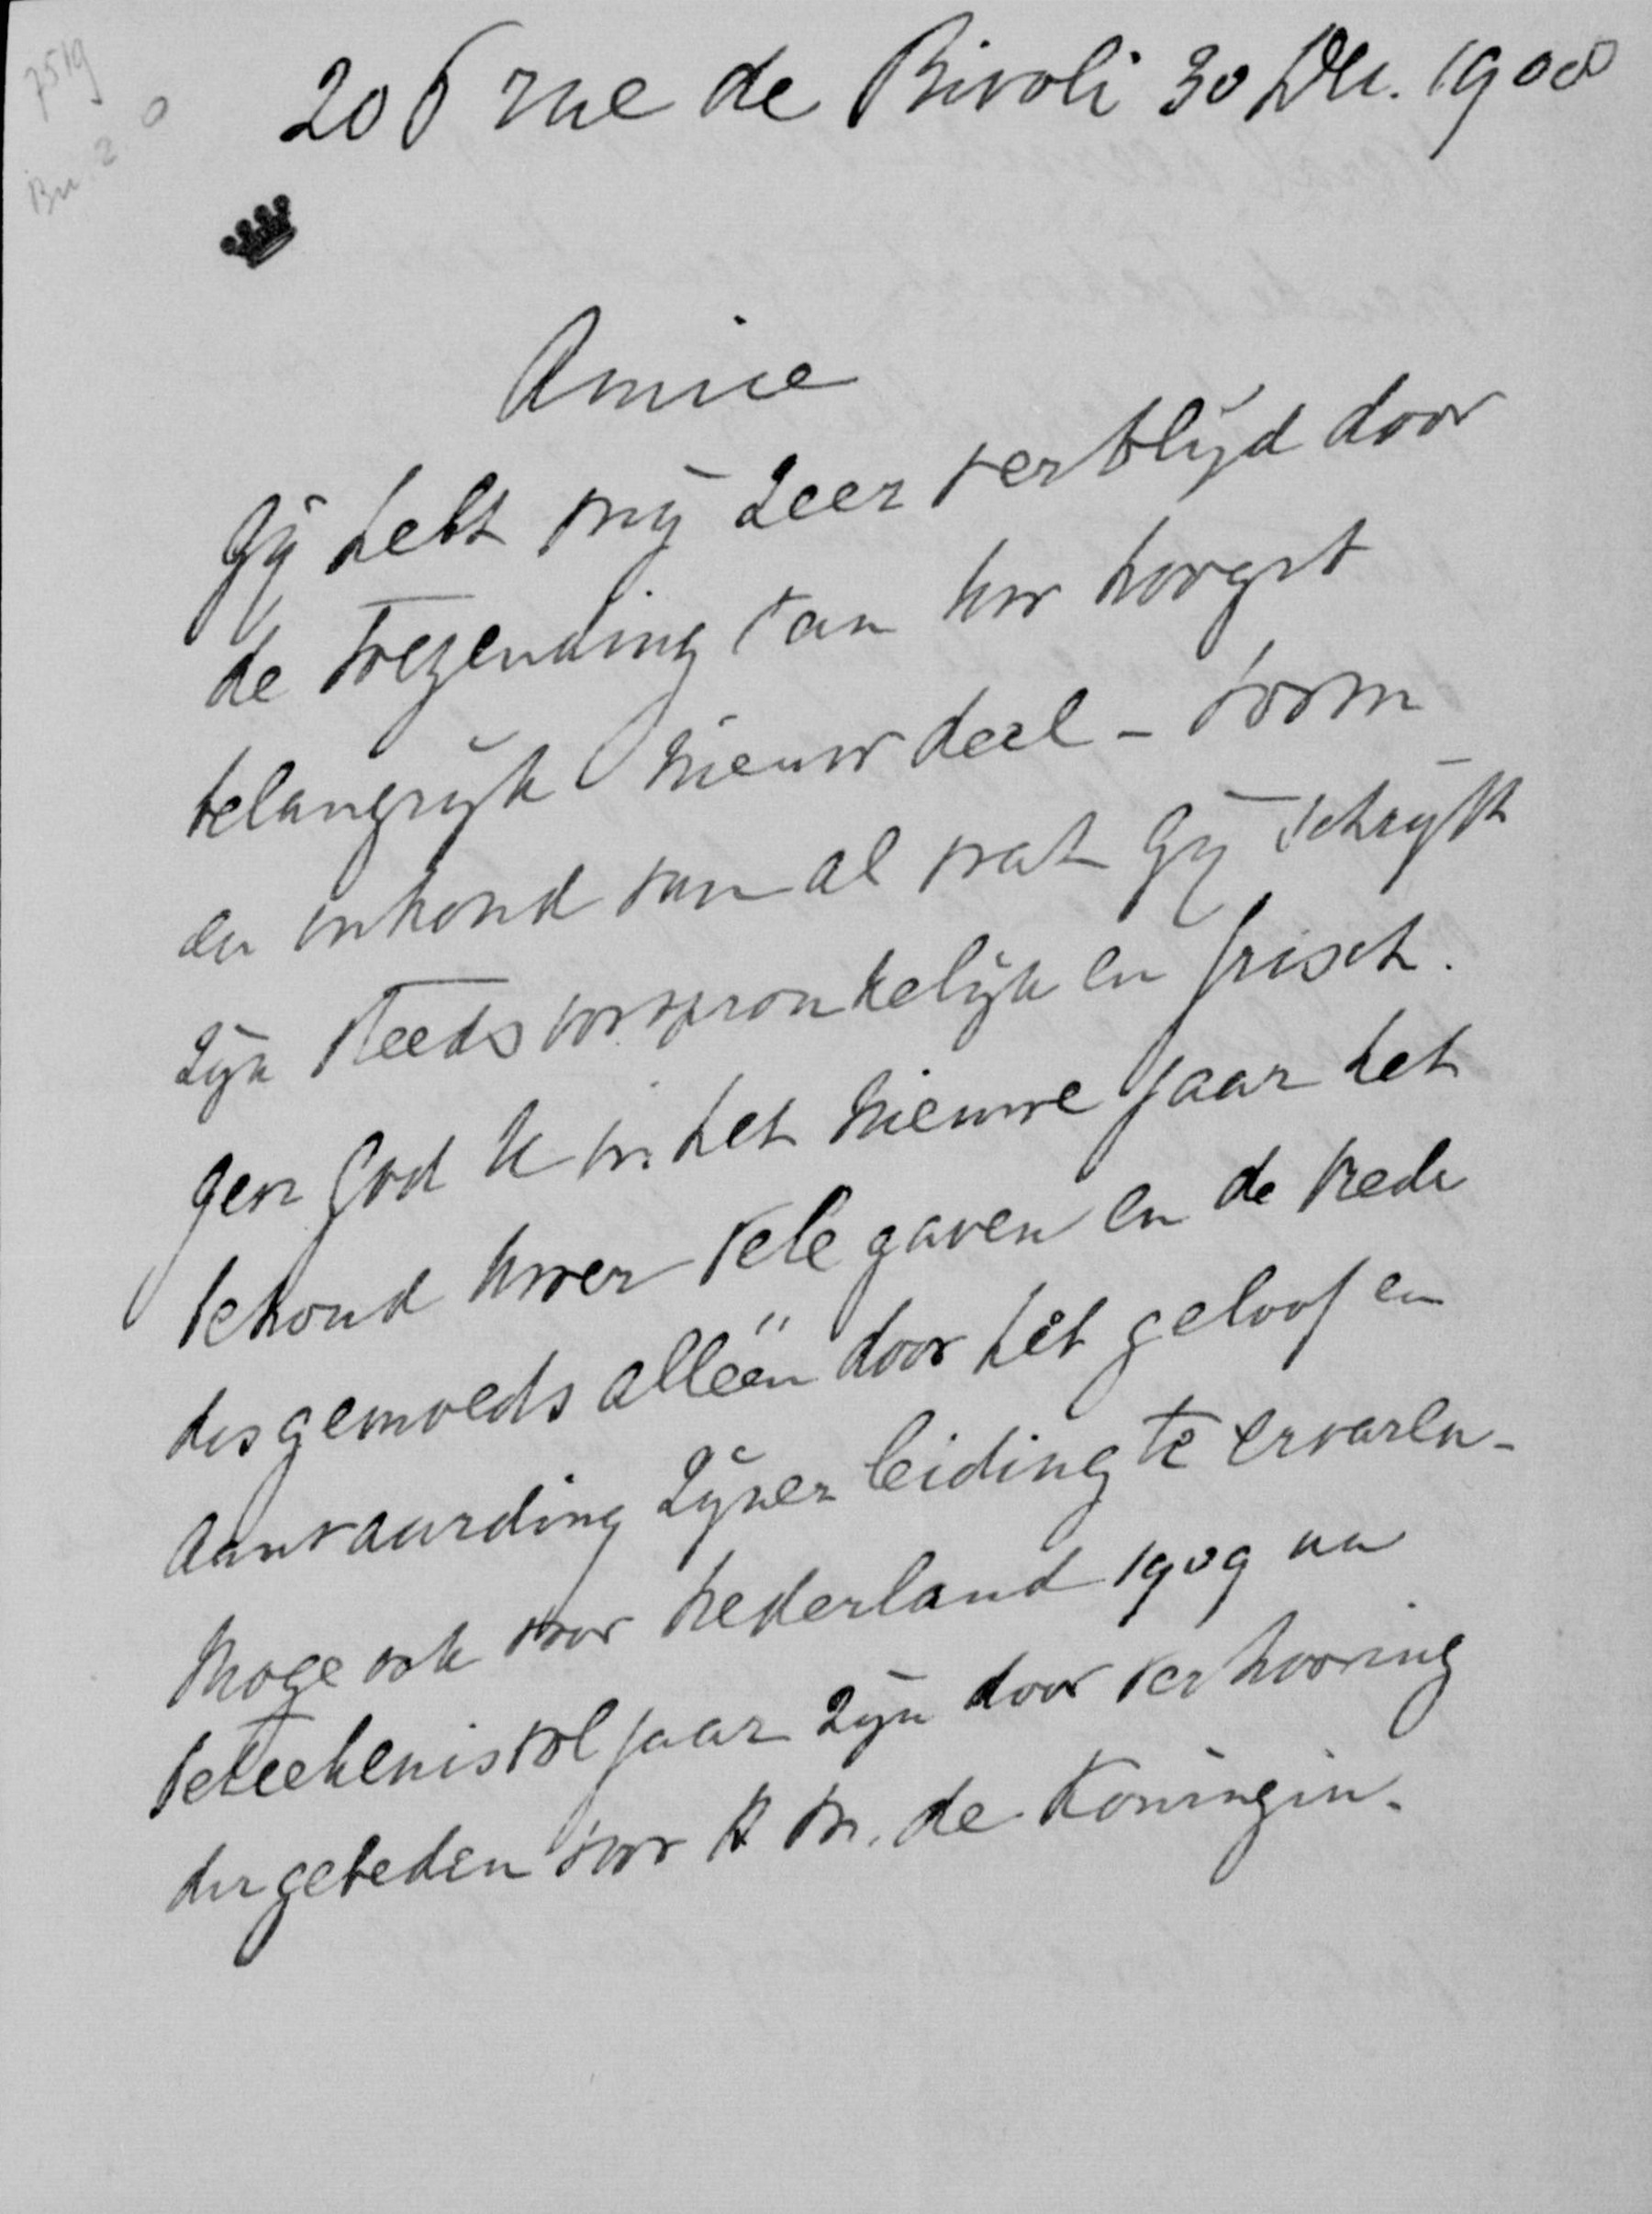 7519
206 rue de Rivoli 30 Dec. 1908
Amice
Gij hebt mij zeer verblijd door
de toezending van Uw hoogst
belangrijk nieuw deel – vorm
en inhoud van al wat Gij schrijft
zijn steeds oorspronkelijk en frisch.
geve God U in het nieuwe jaar het
behoud Uwer vele gaven en de vrede
des gemoeds alleen door het geloof en
aanvaarding Zijner leiding te ervaren –
Moge ook voor Nederland 1909 een
beteekenisvol jaar zijn door verhooring
der gebeden voor H M. de Koningin.